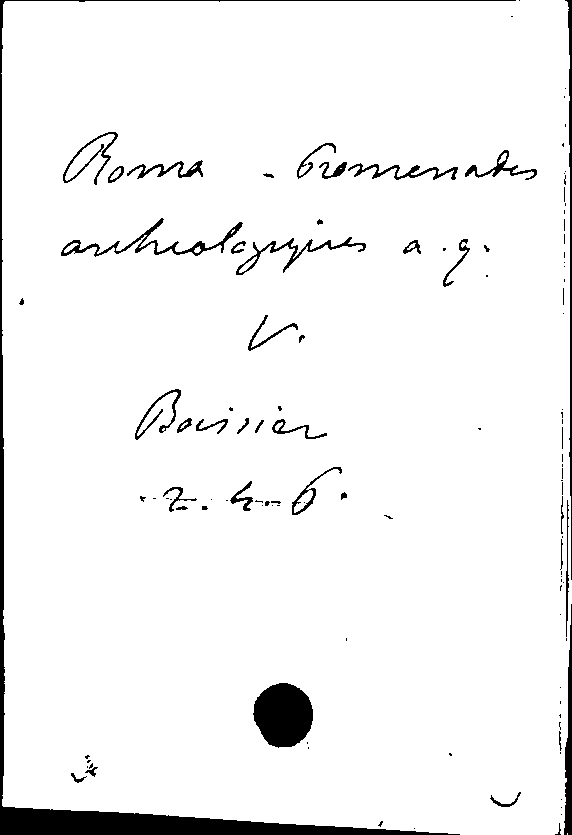 Roma - Promenades
archeologiques a. g.
V.
Boissier
2. 4. 6.